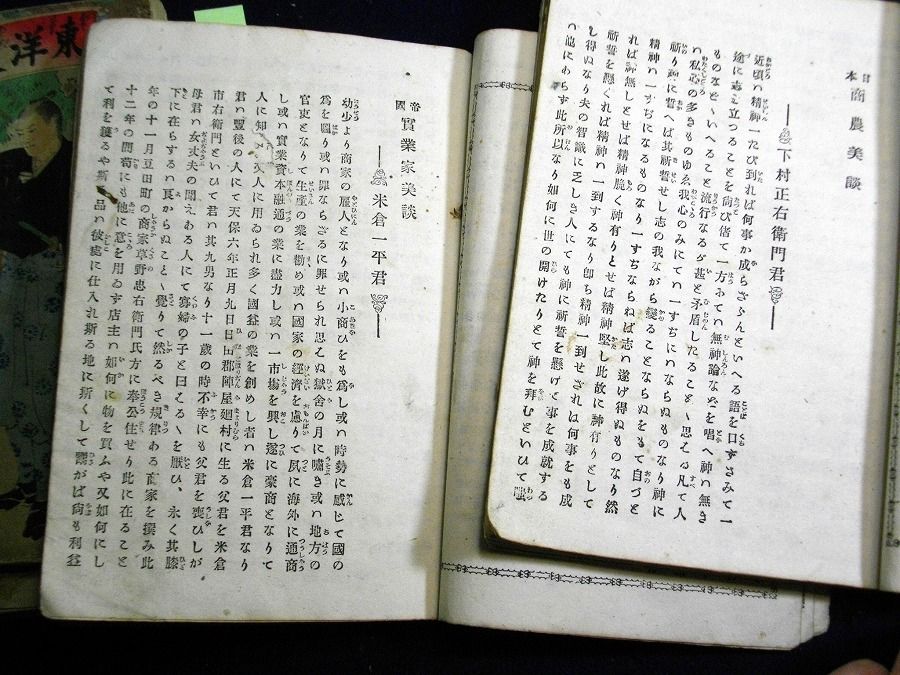 日本 商農美談
下村正右衛門君
近頃ハ精神一たび到れば何事か成らざらんといへる語を口ずさみて一
途に志を立つることを尚び偖て一方ふてハ無神論なぞを唱へ神ハ無き
ものなど〱いへること流行なるが甚と矛盾したること〱思える凡て人
ハ私心の多きものゆゑ我心のみにてハ一すぢにハならぬものなり神に
祈り神に誓へば其祈誓せし志の我ながら變ることならぬをもて自づと
精神ハ一すぢになるものなり一すぢならねば志ハ遂げ得ぬものなり然
れば神無しとせば精神脆く神有りとせば精神堅し此故に神有りとして
祈誓を懸くれば精神の一到するなり卽ち精神一到せざれは何事をも成
し得ぬなり夫の智識に乏しき人にても神に祈誓を懸けて事を成就する
ハ他にわらず此所以なり如何に世の開けたりとて神を拜むといひて嗤
帝國 實業家美談
米倉一平君
幼少より商家の雇人となり或ハ小商ひをも爲し或ハ時勢に感じて國の
爲を圖り或ハ罪ならざるに罪せられ思ハぬ獄舍の月に嘯き或ハ地方の
官吏となりて生產の業を勸め或ハ國家の經濟を慮りて夙に海外に通商
し或ハ實業資本融通の業に盡力し或ハ一市塲を興し遂に豪商となりて
人に知られ又人に用ゐられ多く國益の業を創めし者ハ米倉一平君なり
君ハ豐後の人にて天保六年正月九日日田郡陣屋廻村に生る父君を米倉
市右衞門といひて君ハ其九男なり十一歲の時不幸にも父君を喪ひしが
母君ハ女丈夫の聞えある人にて寡婦の子と曰える〱を厭ひ、永く其膝
下に在らするハ良からぬこと〱覺りて然るべき規律ある商家を撰み此
年の十一月豆田町の商家草野忠右衞門氏方に奉公住せり此に在ること
十二年の間苟にも他に意を用ゐず店主の如何に物を買ふや又如何にし
て利を獲るや斯の品ハ彼處に仕入れ斯る地に斯くして鬻がば尙も利益
東洋